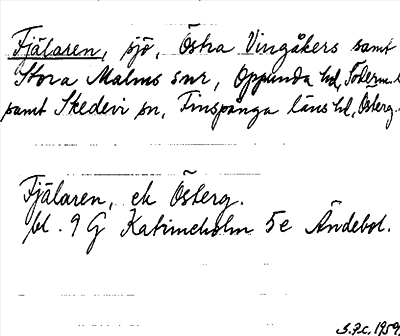 Fjälaren, sjö, Östra Vingåkers samt
Stora Malms snr, Oppunda hd, Söderm.l
samt Skedevi sn, Finspånga läns hd, Österg.
Fjälaren, ek Österg.
bl. 9 G Katrineholm 5e Ändebol.
1959